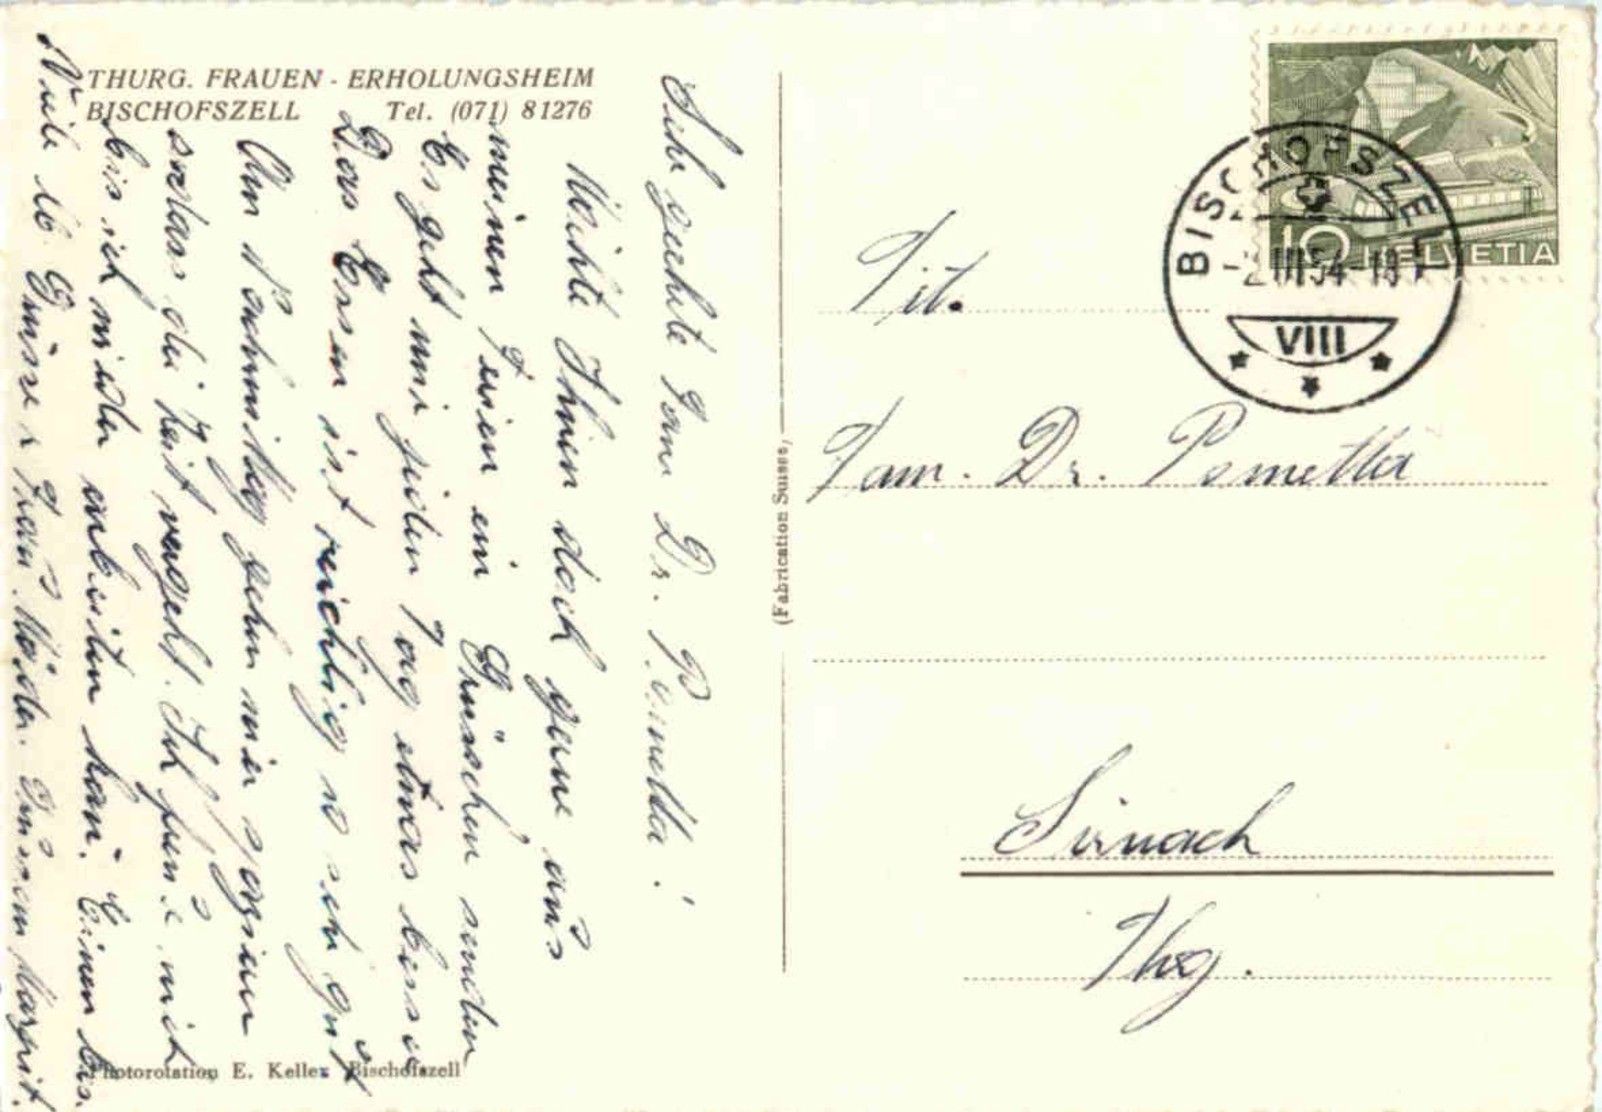 THURG. FRAUEN - ERHOLUNGSHEIM
BISCHOFSZELL Tel. (071) 81276
Sehr geehrte Fam. Dr. Pometta!
Möchte Ihnen doch gerne aus
meinen Ferien ein Grüsschen senden
Es geht mir jeden Tag etwas besser
Das Essen ist reichlig so sehr gut
Am Nachmittag gehn wir spazieren
sodas die Zeit vergeht. Ich freue mich
bis ich wieder arbeiten kan. Einen bes.
Viele lb Grüsse Frau Grüssen Margrit.
Photorotation E. Keller Bischofszell
(Fabrication Suisse)
HELVETIA
10
BISCHOFSZELL
-2.III.54-18
VIII
Tit.
Fam. Dr. Pometta
Sirnach
Thg.